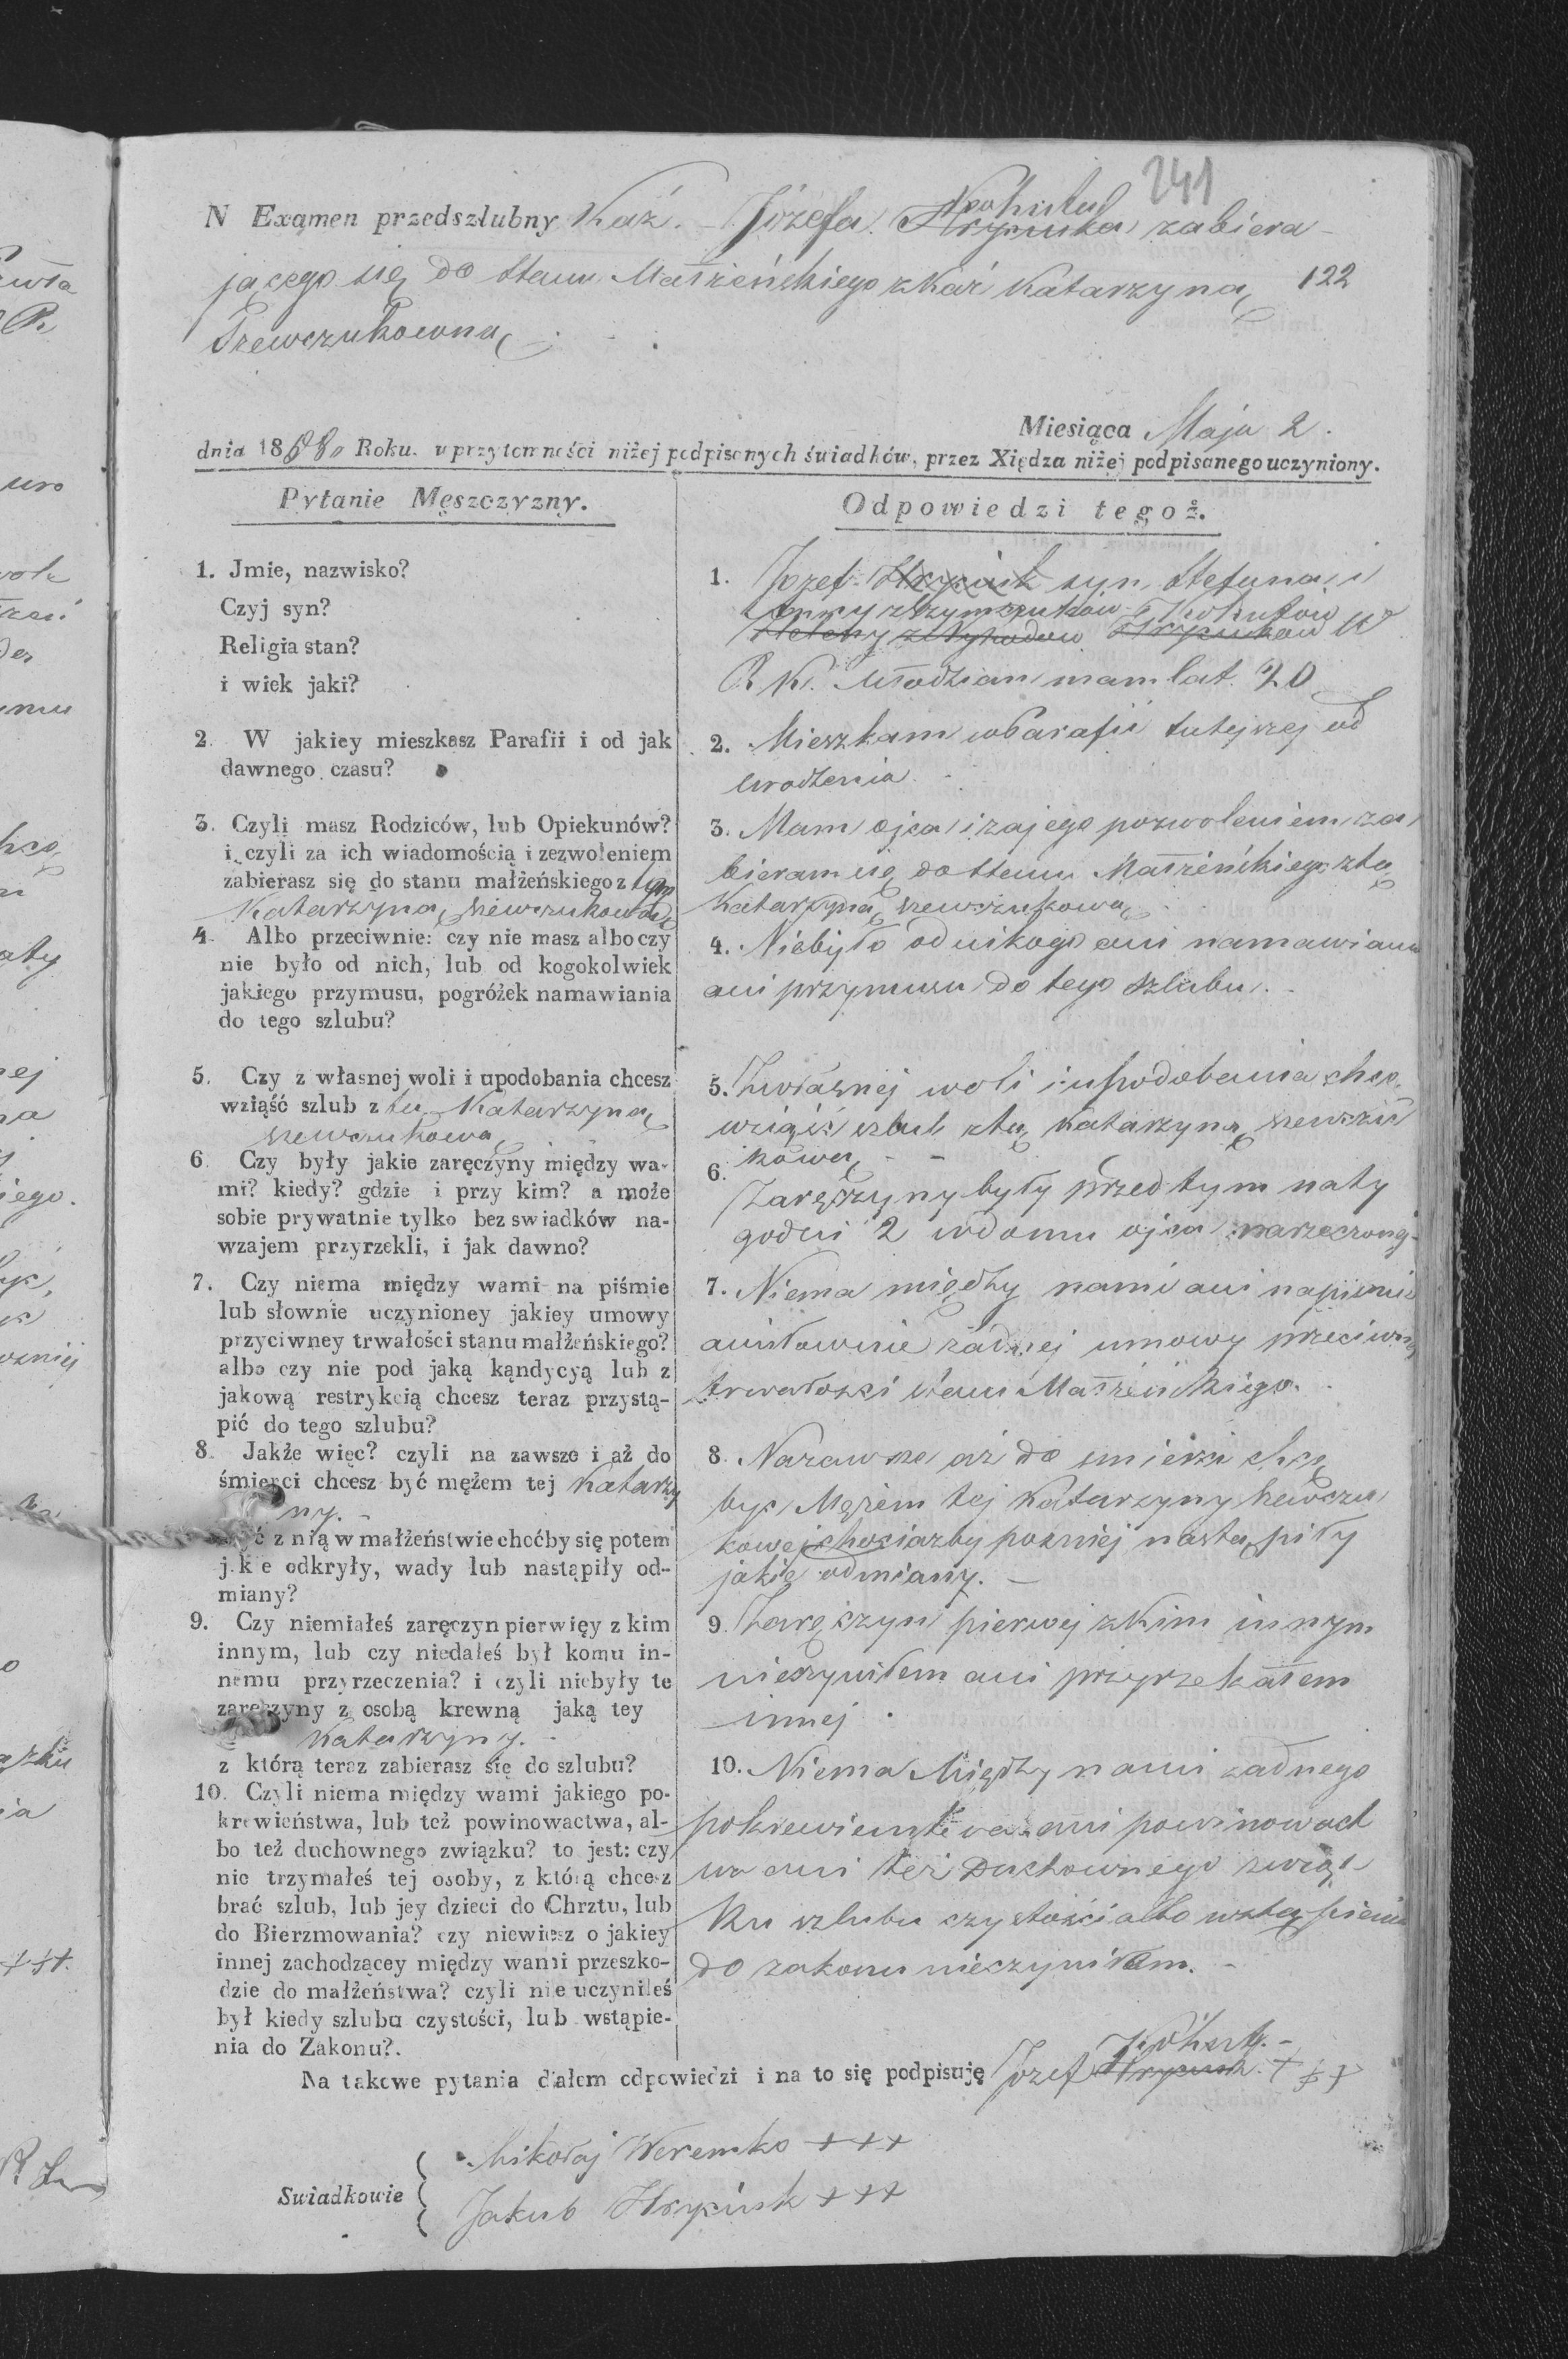 241
N Examen przedszlubny Kaź. Józefa Kohuta Hryciuka zabiera-
jącego się do stanu Małżeńskiego z Kaź Katarzyną 122
Szewczukowną
Miesiąca Maja 2.
dnia 18 Roku. w przytomności niżej podpisanych świadków, przez Xiędza niżej podpisanego uczyniony.
Pytanie Męszczyzny.
1. Jmie, nazwisko?
Czyj syn?
Religia stan?
i wiek jaki?
2. W jakiey mieszkasz Parafii i od jak
dawnego czasu?
3. Czyli masz Rodziców, lub Opiekunów?
i czyli za ich wiadomością i zezwoleniem
zabierasz się do stanu małżeńskiego z tą
Katarzyną szewczukową
4. Albo przeciwnie: czy nie masz albo czy
nie było od nich, lub od kogokolwiek
jakiego przymusu, pogróżek namawiania
do tego szlubu?
5. Czy z własnej woli i upodobania chcesz
wziąść szlub z tą Katarzyną
szewczukową
6. Czy były jakie zaręczyny między wa-
mi? kiedy? gdzie i przy kim? a może
sobie prywatnie tylko bez swiadków na-
wzajem przyrzekli, i jak dawno?
7. Czy niema między wami na piśmie
lub słownie uczynioney jakiey umowy
przyciwney trwałości stanu małżeńskiego?
albo czy nie pod jaką kąndycyą lub z
jakową restrykcią chcesz teraz przystą-
pić do tego szlubu?
8. Jakże więc? czyli na zawsze i aż do
śmierci chcesz być mężem tej Katarzy
ny.
z nią w małżeństwie choćby się potem
jakie odkryły, wady lub nastąpiły od-
miany?
9. Czy niemiałeś zaręczyn pierwięy z kim
innym, lub czy niedałeś był komu in-
nemu przyrzeczenia? i czyli niebyły te
zaręczyny z osobą krewną jaką tey
Katarzyny.
z którą teraz zabierasz się do szlubu?
10. Czyli niema między wami jakiego po-
krewieństwa, lub też powinowactwa, al-
bo też duchownego związku? to jest: czy
nie trzymałeś tej osoby, z którą chcesz
brać szlub, lub jey dzieci do Chrztu, lub
do Bierzmowania? czy niewiesz o jakiey
innej zachodzącey między wami przeszko-
dzie do małżeństwa? czyli nie uczyniłeś
był kiedy szlubu czystości, lub wstąpie-
nia do Zakonu?.
Odpowiedzi tegoż.
1. Jozef Hryciuk syn Stefana i
Anny z Szymczuków Kohutów
Heleny z Hryciuków W
R. K. Młodzian mam lat 20
2. Mieszkam w Parafii tutejszej od
urodzenia
3. Mam ojca i za jego pozwoleniem za
bieram się do stanu Małżeńskiego z tą
Katarzyną szewczukową
4. Niebyło od nikogo ani namawiania
ani przymusu do tego szlubu.
5. Zwłasnej woli i upodobania chcę
wziąść szlub z tą Katarzyną szewczu
kową
6. Zaręczyny były przed tym na ty
godni 2 w domu ojca narzeczonej
7. Niema między nami ani napismie
ani słownie żadnej umowy przeciwnej
trwałości stanu Małżeńskiego.
8. Nazawsze aż do smierci chcę
być Mężem tej Katarzyny szewczu
kowej chociażby pozniej nastąpiły
jakie odmiany.
9. Zaręczyn pierwej z kim innym
nieczyniłem ani przyrzekałem
innej.
10. Niema Między nami żadnego
pokrewieństwa ani powinowact
wa ani też Duchownego związ
ku szlubu czystości albo wstąpienia
do zakonu nieczyniłem.
Kohut.-
Na takowe pytania dałem odpowiedzi i na to się podpisuję Jozef Hryciuk + + +
Mikołaj Weremko + + +
Swiadkowie
Jakub Hryciuk + + +